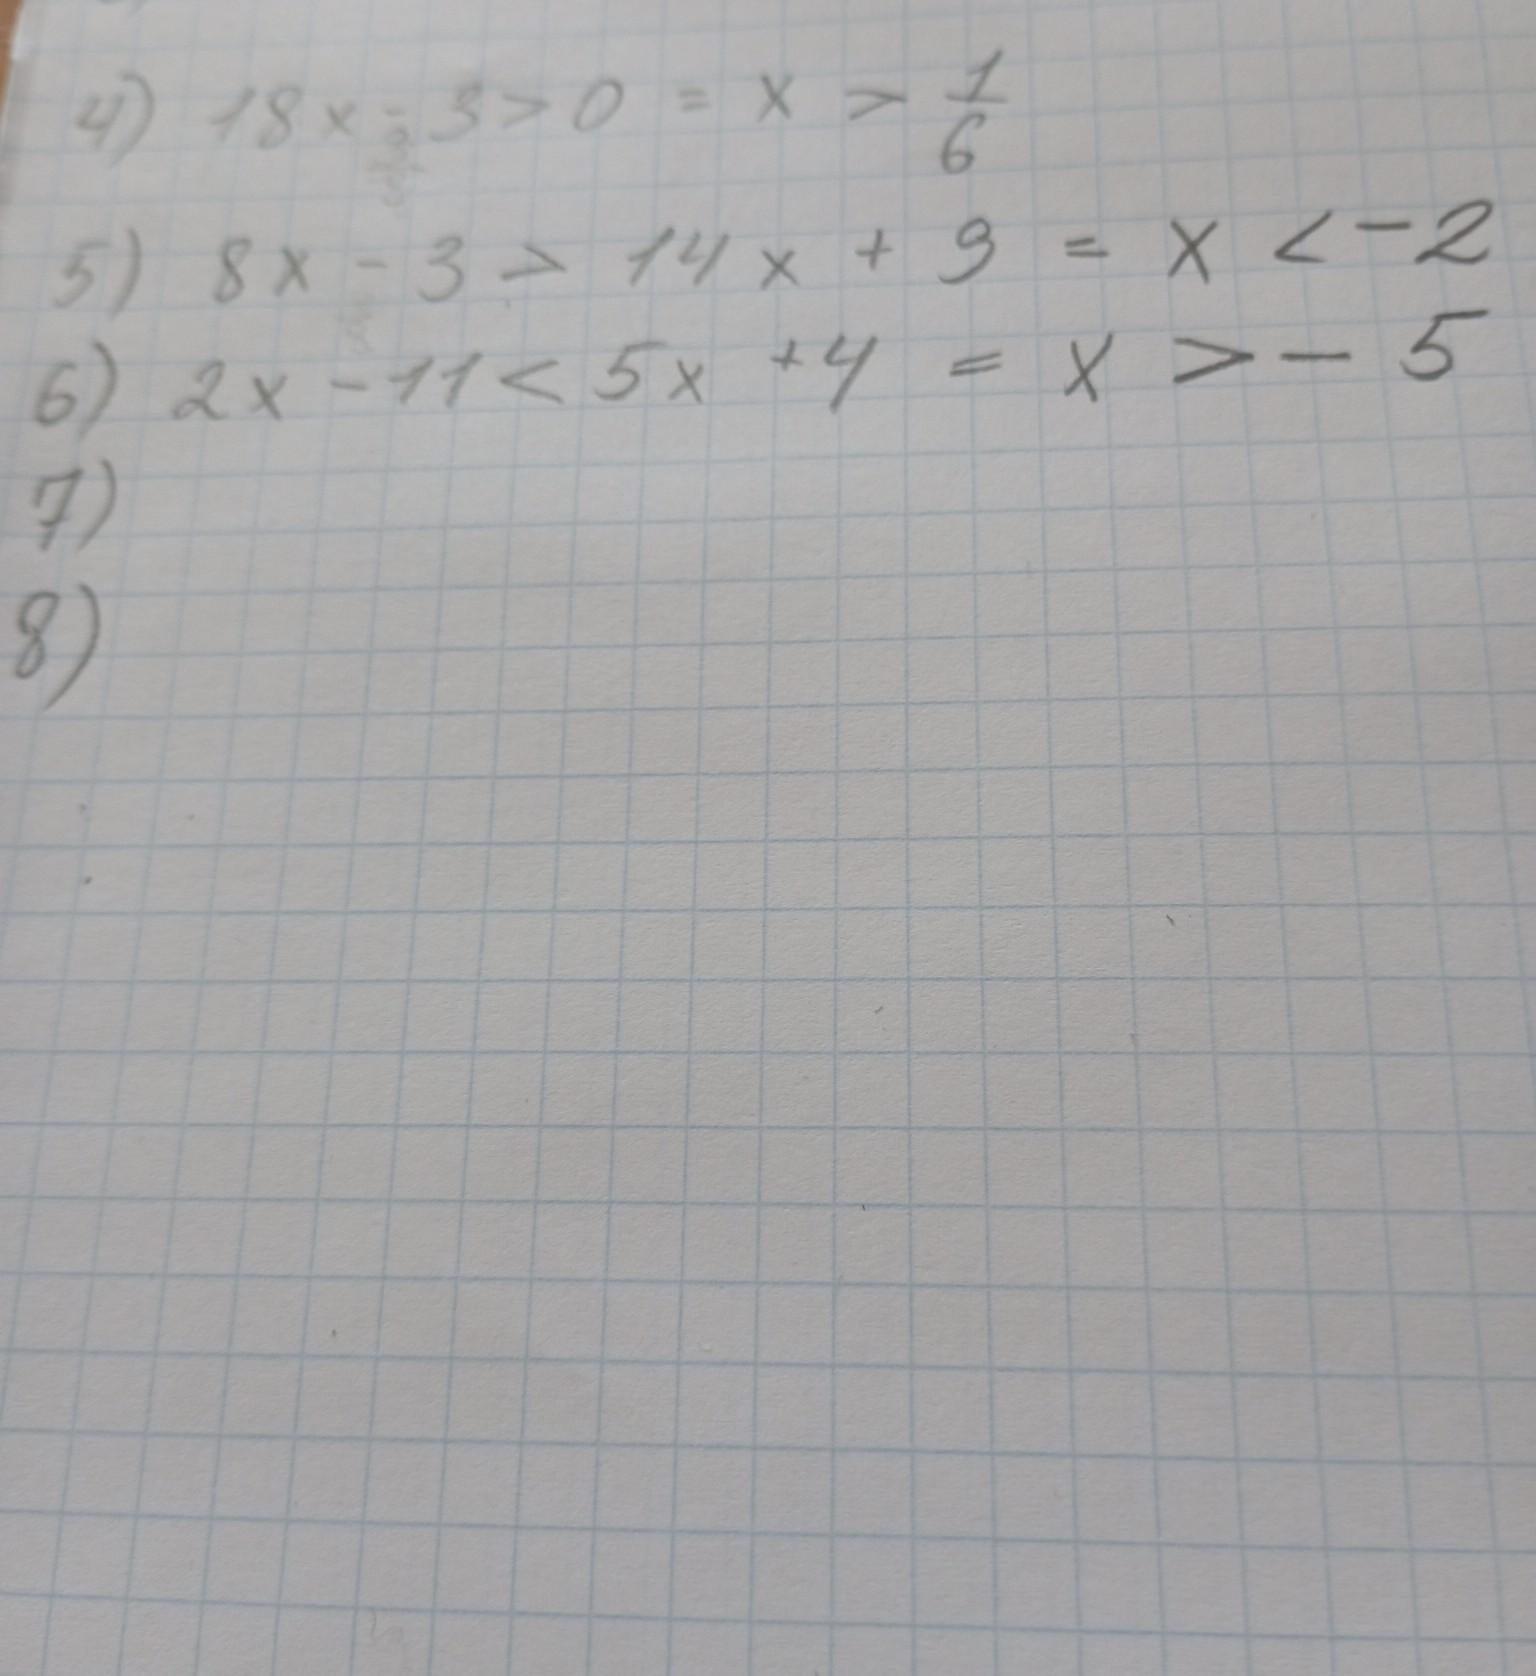 4) 18x - 3 > 0 = x > 1/6
5) 8x - 3 > 14x + 9 = x < -2
6) 2x - 11 < 5x + 4 = x > - 5
7)
8)